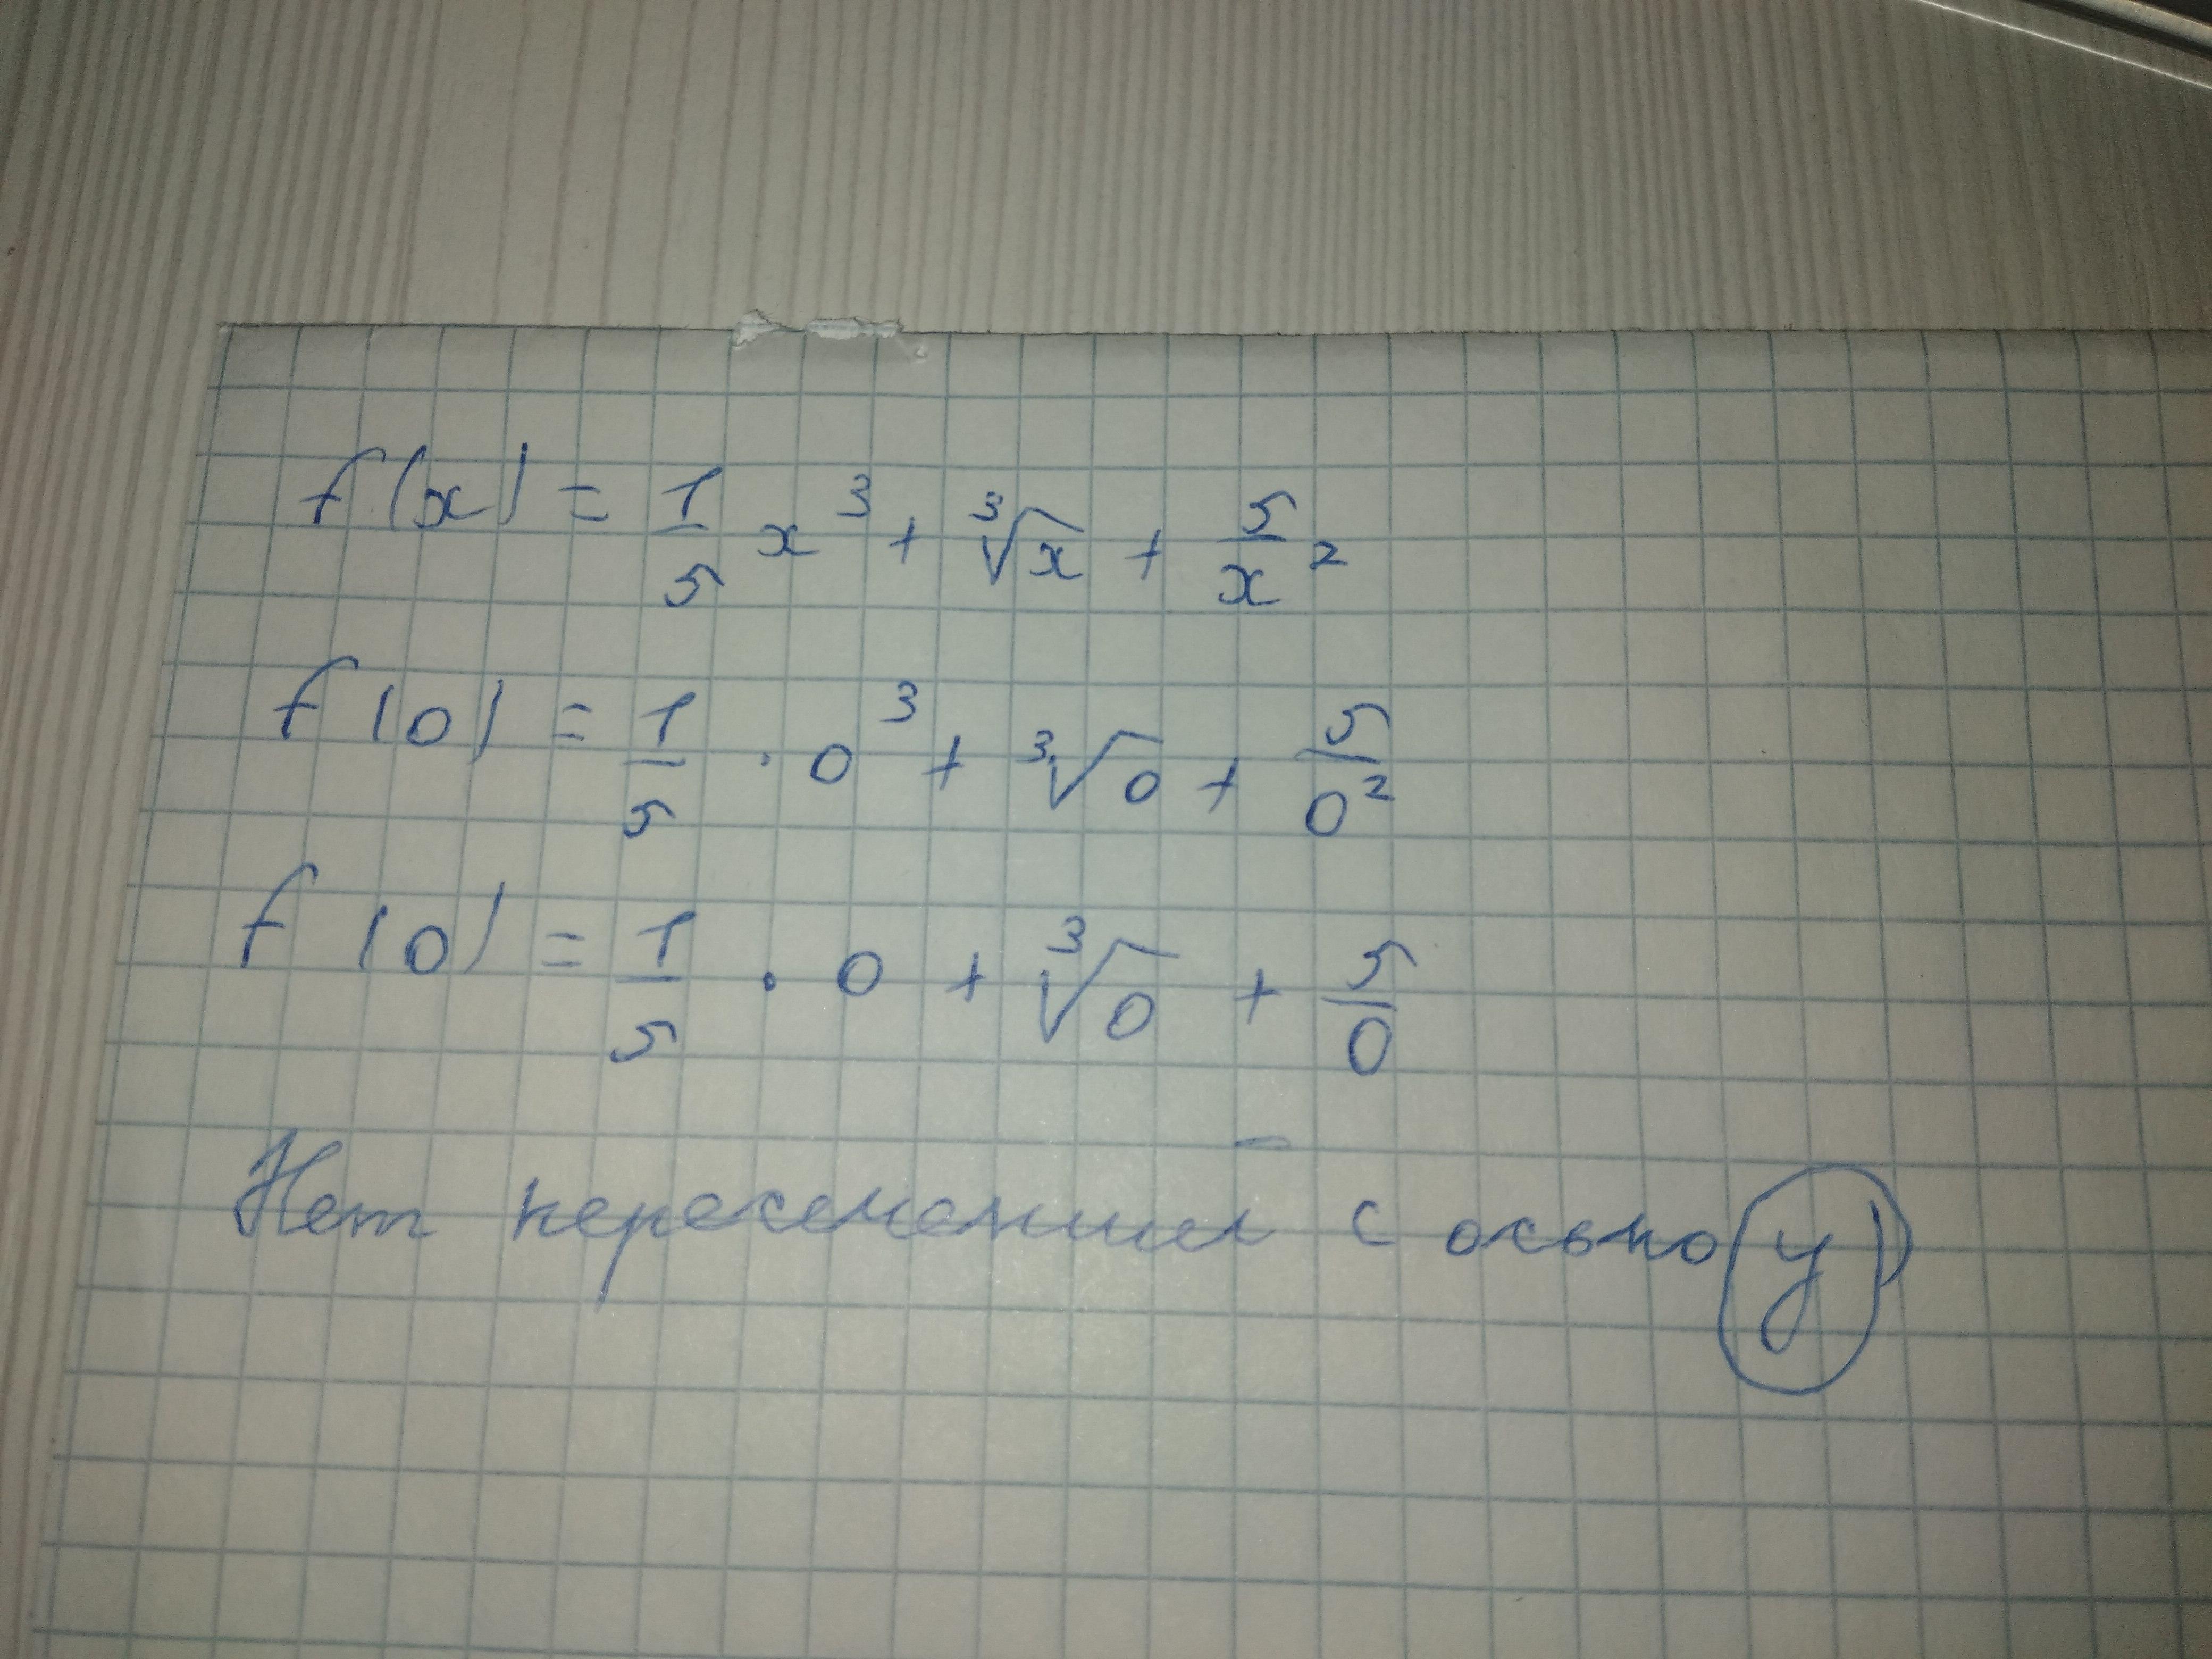 f(x) = 1/5 x³ + ∛x + 5/x²
f(0) = 1/5 · 0³ + ∛0 + 5/0²
f(0) = 1/5 · 0 + ∛0 + 5/0
Нет пересечения с осью y